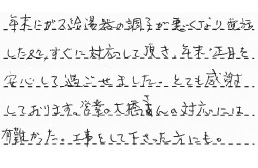 年末にガス給湯器の調子が悪くなり電話
した所、すぐに対応して頂き、年末・正月を
安心して過ごせました。とても感謝
しております。営業の大橋さんの対応には
有難かった。工事をして下さった方にも。